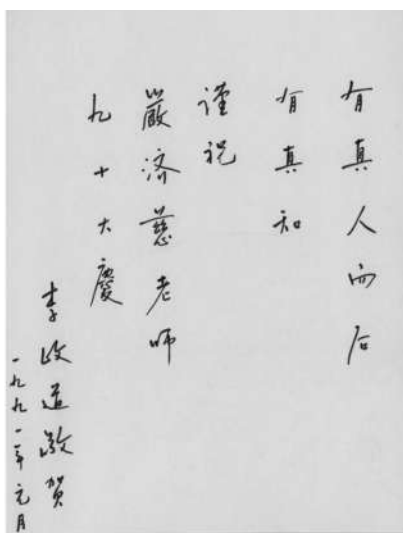 有真人而后
有真知
谨祝
嚴济慈老师
九十大慶
李政道敬贺
一九九一年元月